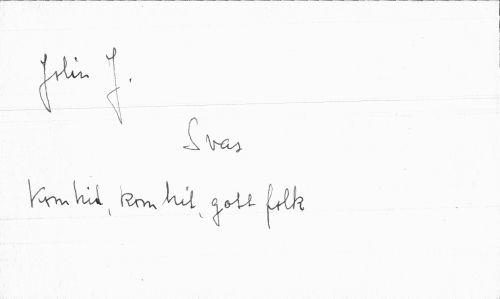 Jolin J.
Svas
Kom hit, kom hit, gott folk